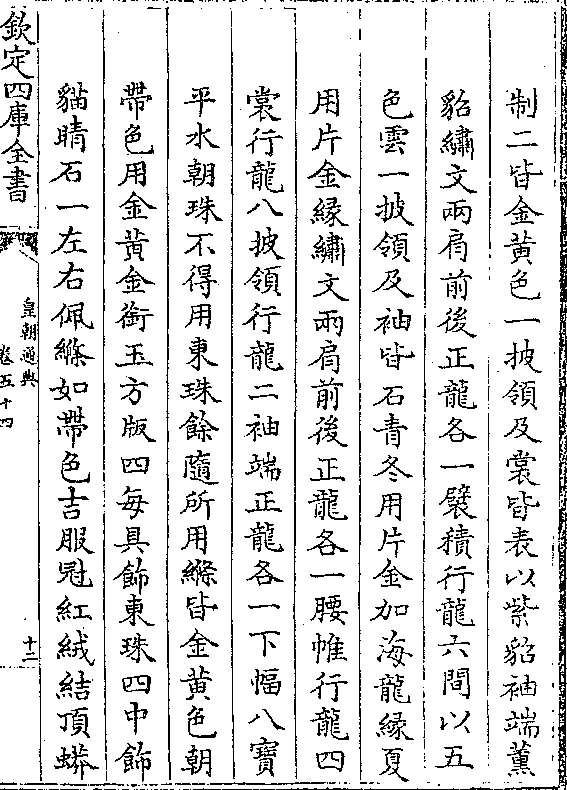 制二皆金黄色一披領及裳皆表以紫貂袖端薰
貂繡文兩肩前後正龍各一襞積行龍六間以五
色雲一披領及袖皆石青冬用片金加海龍縁夏
用片金縁繡文兩肩前後正龍各一腰帷行龍四
裳行龍八披領行龍二袖端正龍各一下幅八寶
平水朝珠不得用東珠餘隨所用縧皆金黄色朝
帶色用金黄金銜玉方版四每具飾東珠四中飾
貓睛石一左右佩縧如帶色吉服冠紅絨結頂蟒
欽定四庫全書
皇朝通典
卷五十四
十二